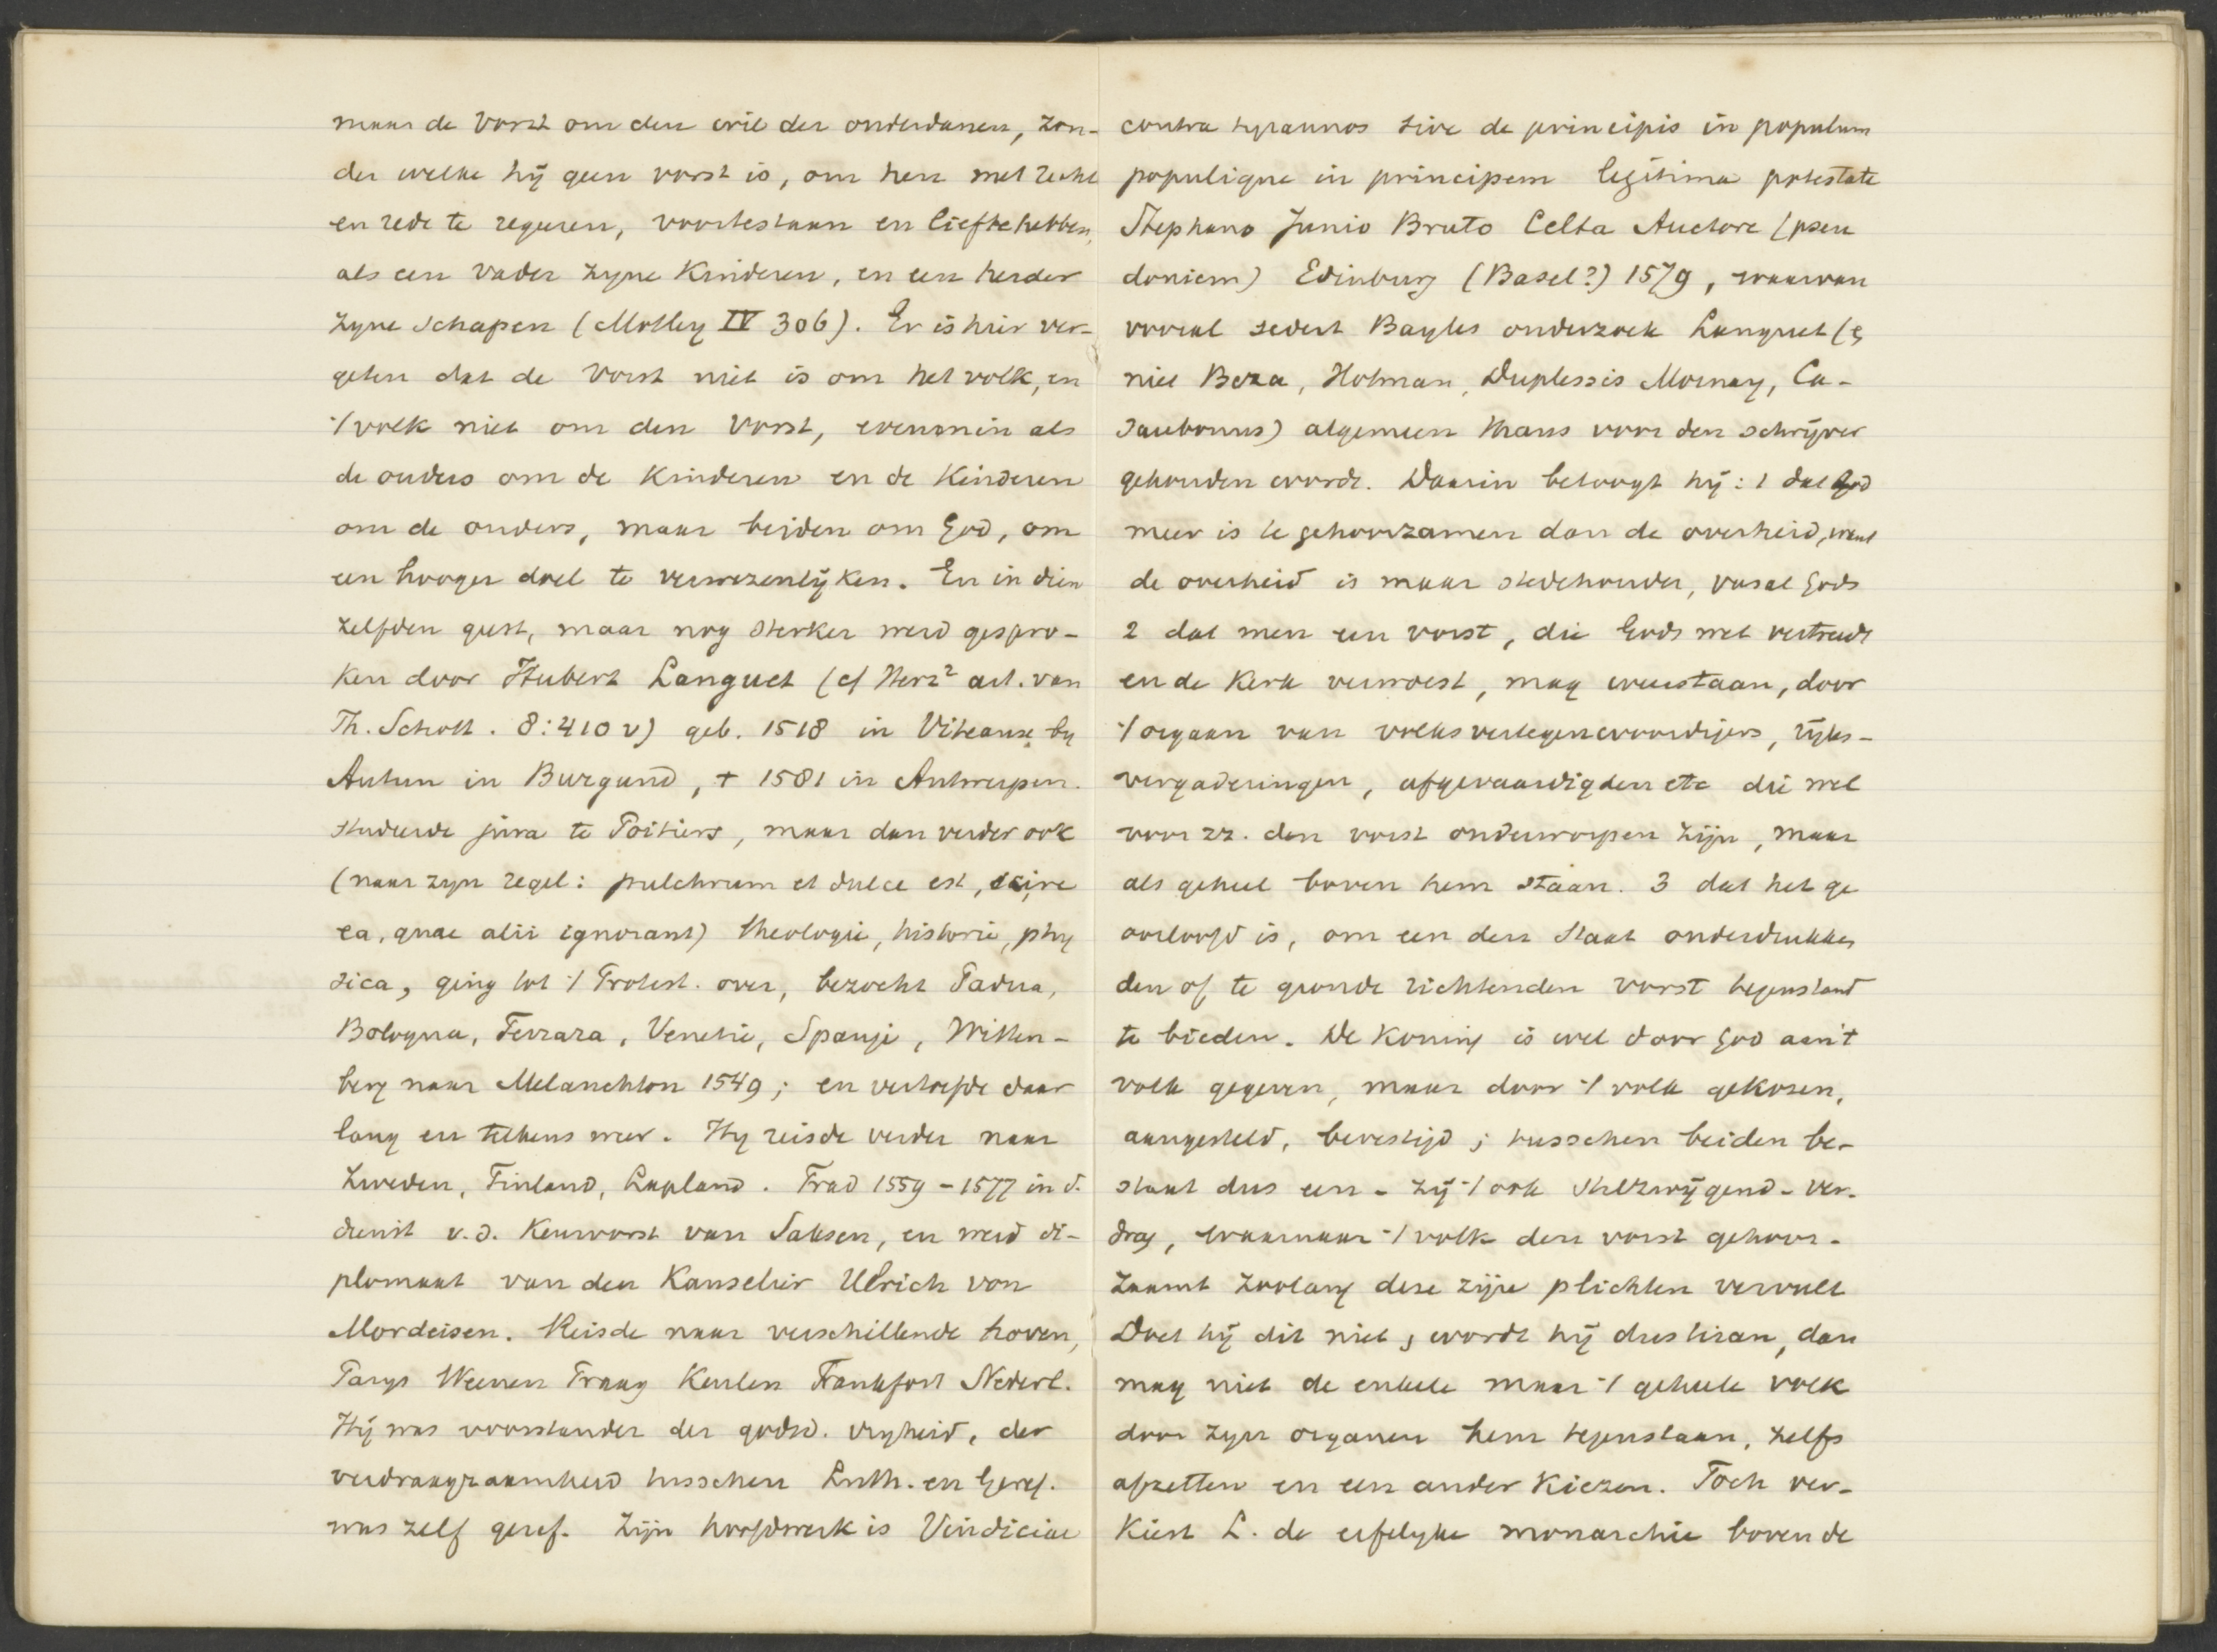 maar de Vorst om den wil der onderdanen, zon-
der welke hij geen vorst is, om hen met recht
en rede te regeren, voortestaan en liefhebben,
als een vader zyne Kinderen, en een herder
zyne schapen (Motley IV 306). Er is hier ver-
geten dat de Vorst niet is om het volk, en
't volk niet om den Vorst, evenmin als
de ouders om de Kinderen en de Kinderen
om de ouders, maar beiden om God, om
een hooger doel te verwezenlijken. En in dien
zelfden geest, maar nog sterker werd gespro-
ken door Hubert Languet (cf Herz² art. van
Th. Schott. 8:410 v) geb. 1518 in Viteaux by
Autun in Burgund, + 1581 in Antwerpen.
studeerde jura te Poitiers, maar dan verder ook
(naar zyn regel: pulchrum et dulce est, scire
ea, quae alii ignorant) theologie, historie, phy
sica, ging tot 't Protest. over, bezocht Padua,
Bologna, Ferrara, Venetie, Spanje, Witten-
berg naar Melanchton 1549; en vertoefde daar
lang en telkens weer. Hy reisde verder naar
Zweden, Finland, Lapland. Trad 1559-1577 in d.
dienst v.d. Keurvorst van Saksen, en werd di-
plomaat van den Kanselier Ulrich von
Mordeisen. Reisde naar verschillende hoven,
Parys Weenen Praag Keulen Frankfort Nederl.
Hij was voorstander der godsd. vryheid, der
verdraagzaamheid tusschen Luth. en Geref.
was zelf geref. Zijn hoofdwerk is Vindiciae
contra tyrannos sive de principis in populum
populique in principem legitima potestate
Stephano Junio Bruto Celta Auctore (pseu
doniem) Edinburg (Basel?) 1579, waarvan
vooral sedert Bayles onderzoek Languet (&
niet Beza, Hotman, Duplessis Mornay, Ca-
saubonus) algemeen thans voor den schrijver
gehouden wordt. Daarin betoogt hij: 1 dat God
meer is te gehoorzamen dan de overheid, want
de overheid is maar stedehouder, vasal Gods
2 dat men een vorst, die Gods wet vertreedt
en de Kerk verwoest, mag weerstaan, door
't orgaan van volksvertegenwoordigers, rijks-
vergaderingen, afgevaardigden etc die wel
voor zz. den vorst onderworpen zijn, maar
als geheel boven hem staan. 3 dat het ge
oorloofd is, om een den Staat onderdrukken
den of te gronde richtenden vorst tegenstand
te bieden. De Koning is wel door God aan 't
volk gegeven, maar door 't volk gekozen,
aangesteld, bevestigd; tusschen beiden be-
staat dus een - zij 't ook stilzwijgend - ver-
drag, waarnaar 't volk den vorst gehoor-
zaamt zoolang deze zijne plichten vervult
Doet hij dit niet, wordt hij dus tiran, dan
mag niet de enkele maar 't geheele volk
door zyn organen hem tegenstaan, zelfs
afzetten en een ander Kiezen. Toch ver-
Kiest L. de erfelyke monarchie boven de